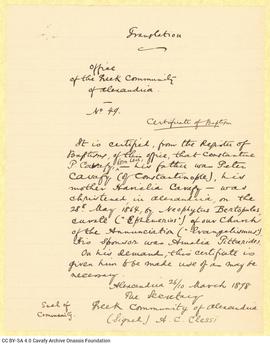 Translation
Office
of the Greek Community
of Alexandria.
No 49.
Certificate of Baptism
It is certified, from the Register of
Baptisms, of this office, that Constantine
P Cavafy, his father was Peter
Cavafy (of Constantinople), his
mother Hariclia Cavafy – was
christened in Alexandria, on the
28th May 1864, by Neophytus
("Ephimerios") of our Church
of the Annunciation ("Evangelismos")
His sponsor was Amalia Pittarides.
On his demand, this certificate is
given him to be made use of as may be
necessary.
Alexandria 26/10 March 1898
The Secretary
Seal of
Community.
Greek Community of Alexandria
(Signed) A. C.
CC BY-SA 4.0 Cavafy Archive Onassis Foundation